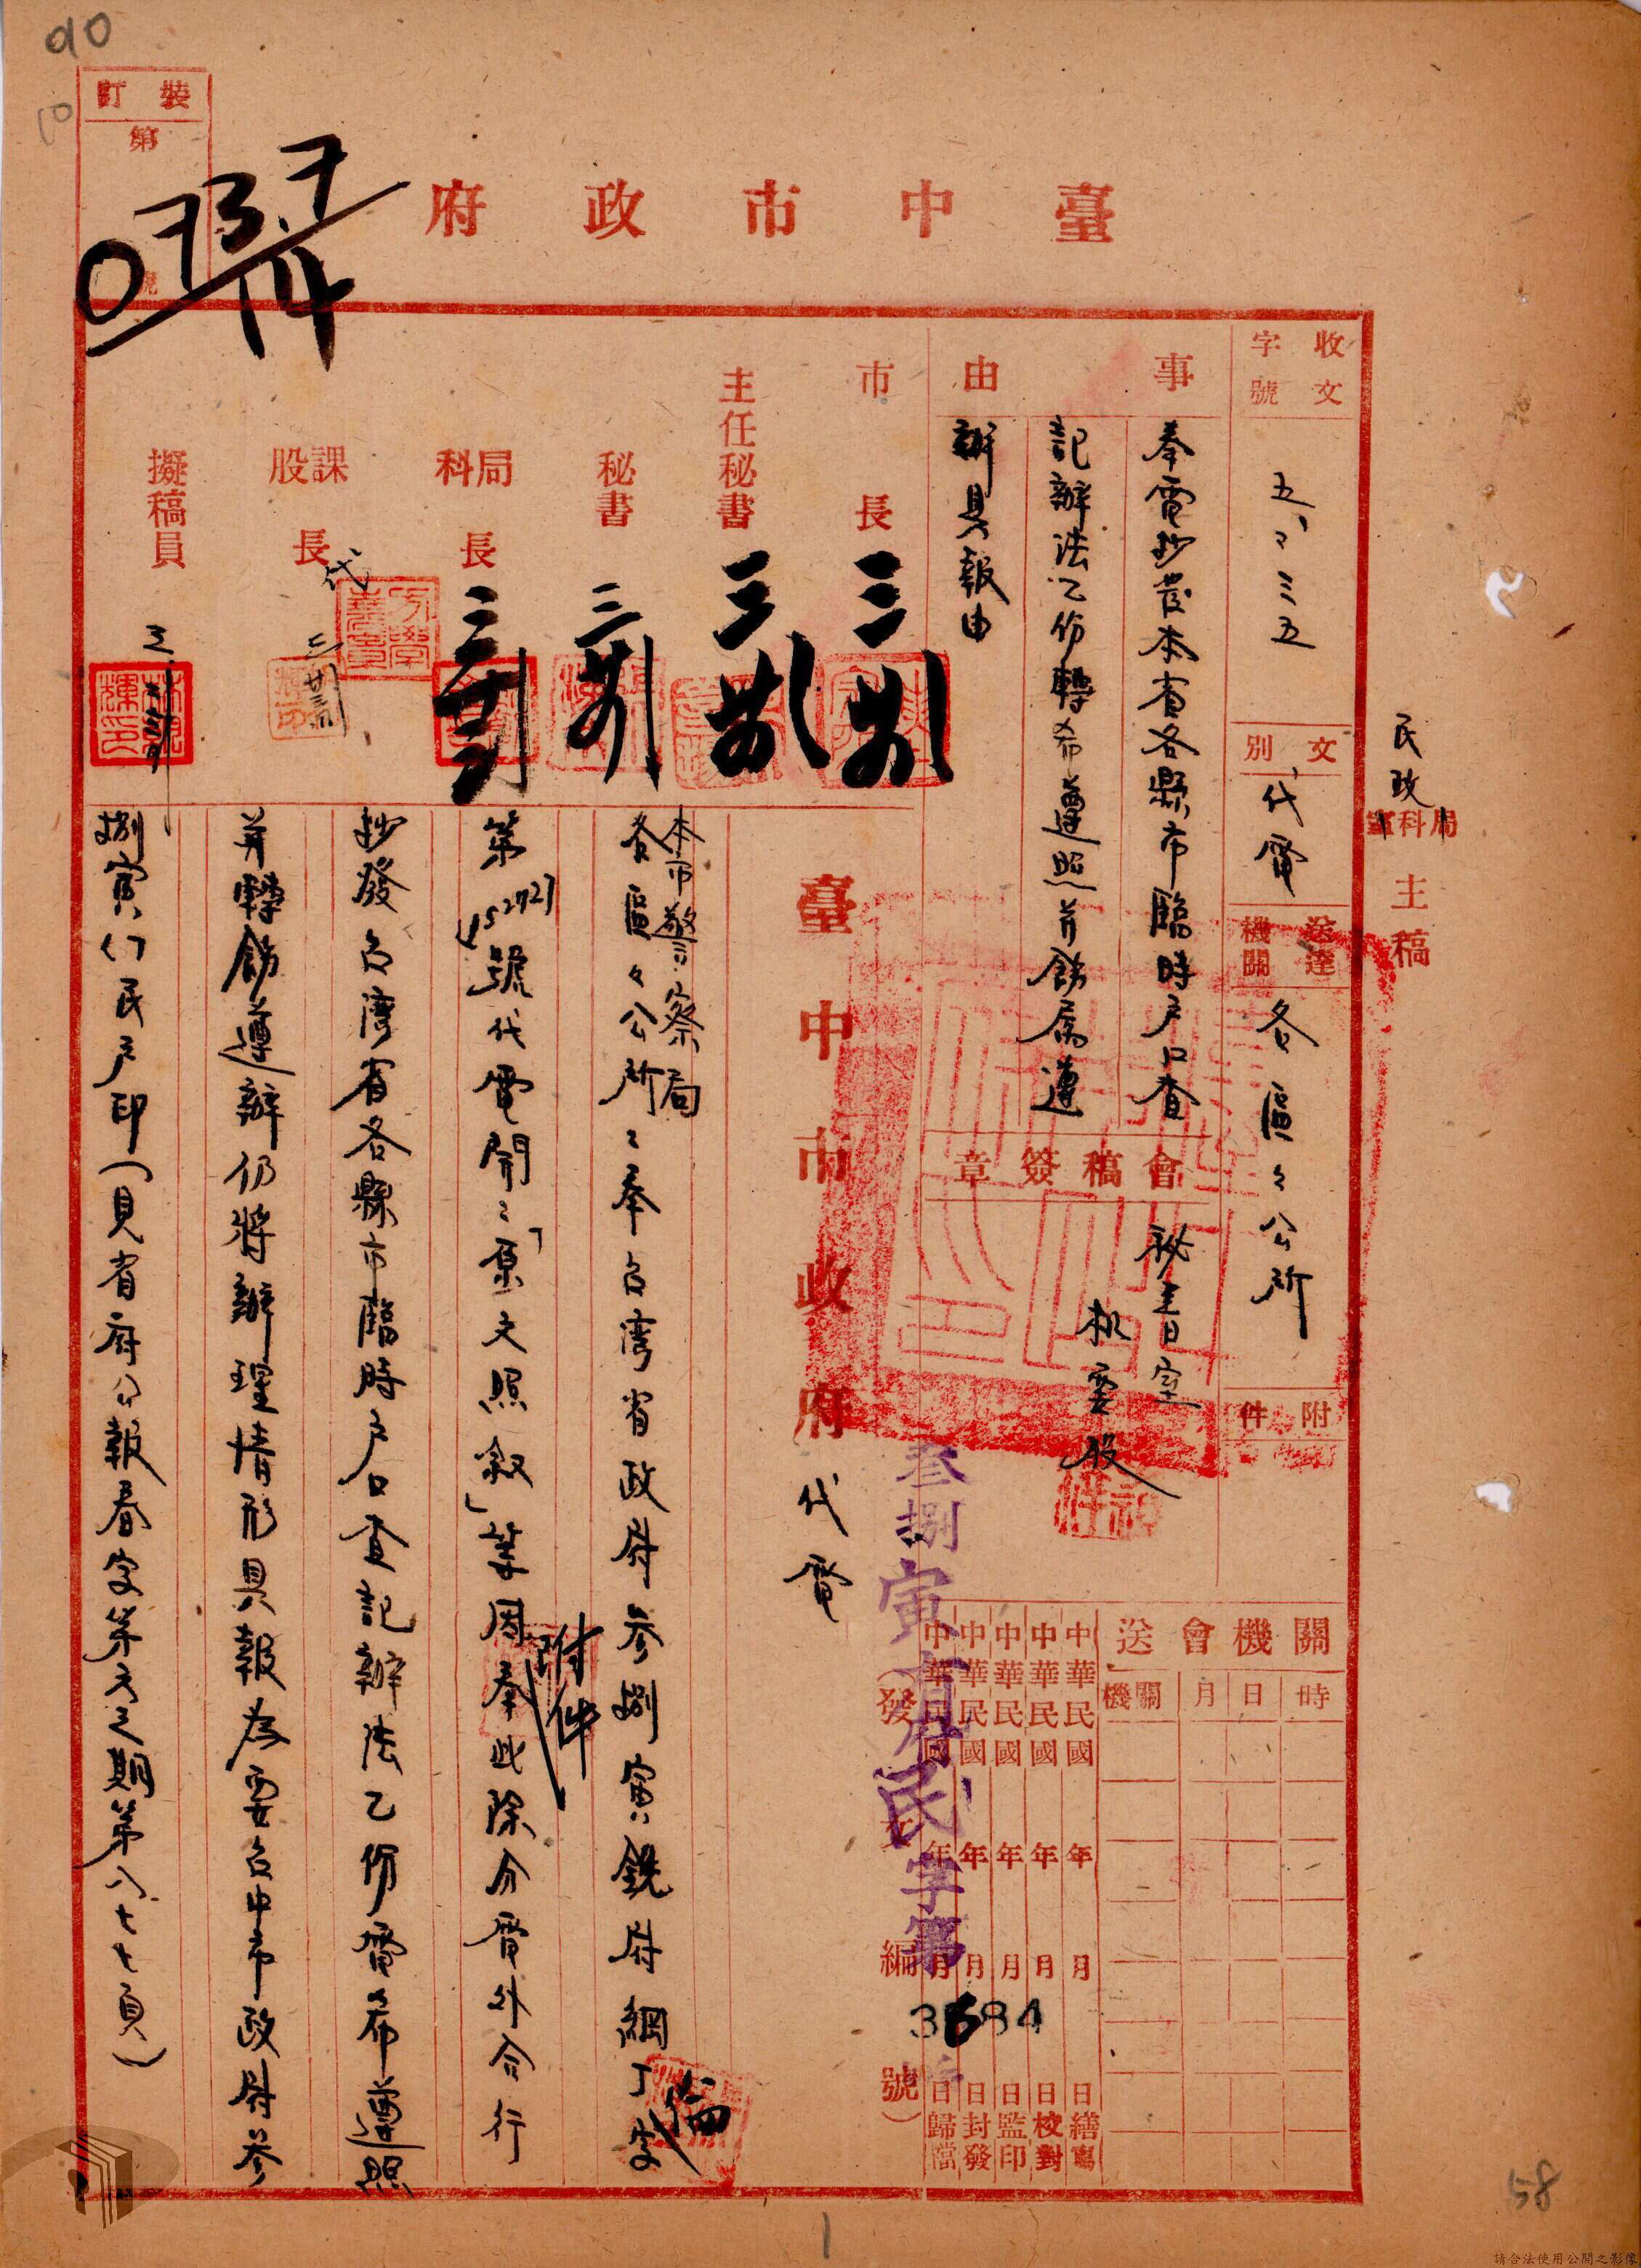 90
裝訂
第
號
073.7
14
臺中市政府
民政局科室主稿
收文字號
五、二三五
文別
代電
送達機關
各區區公所
附件
事由
奉電抄發本省各縣市臨時户口查
記辦法乙份轉希遵照并飭屬遵
辦具報由
會稿簽章
秘書室
机要股
關機會送
時日月關機
中華民國年月日繕寫
中華民國年月日校對
中華民國年月日監印
中華民國年月日封發
中華民國年月日歸檔
(發文編號)
叁捌寅府民字第
3684
市長
主任秘書
秘書
局科長
課股長
代
擬稿員
臺中市政府代電
本市警察局
各區々公所:奉台灣省政府參捌寅銑府綱丁字
第15272號代電開:「原文照叙」等因
附件
奉此除分電外合行
抄發台灣省各縣市臨時户口查記辦法乙份電希遵照
并轉飭遵辦仍將辦理情形具報為要台中市政府參
捌寅()民户印(見省府公報春字第六之期第八七七頁)
58
1
請合法使用公開之影像